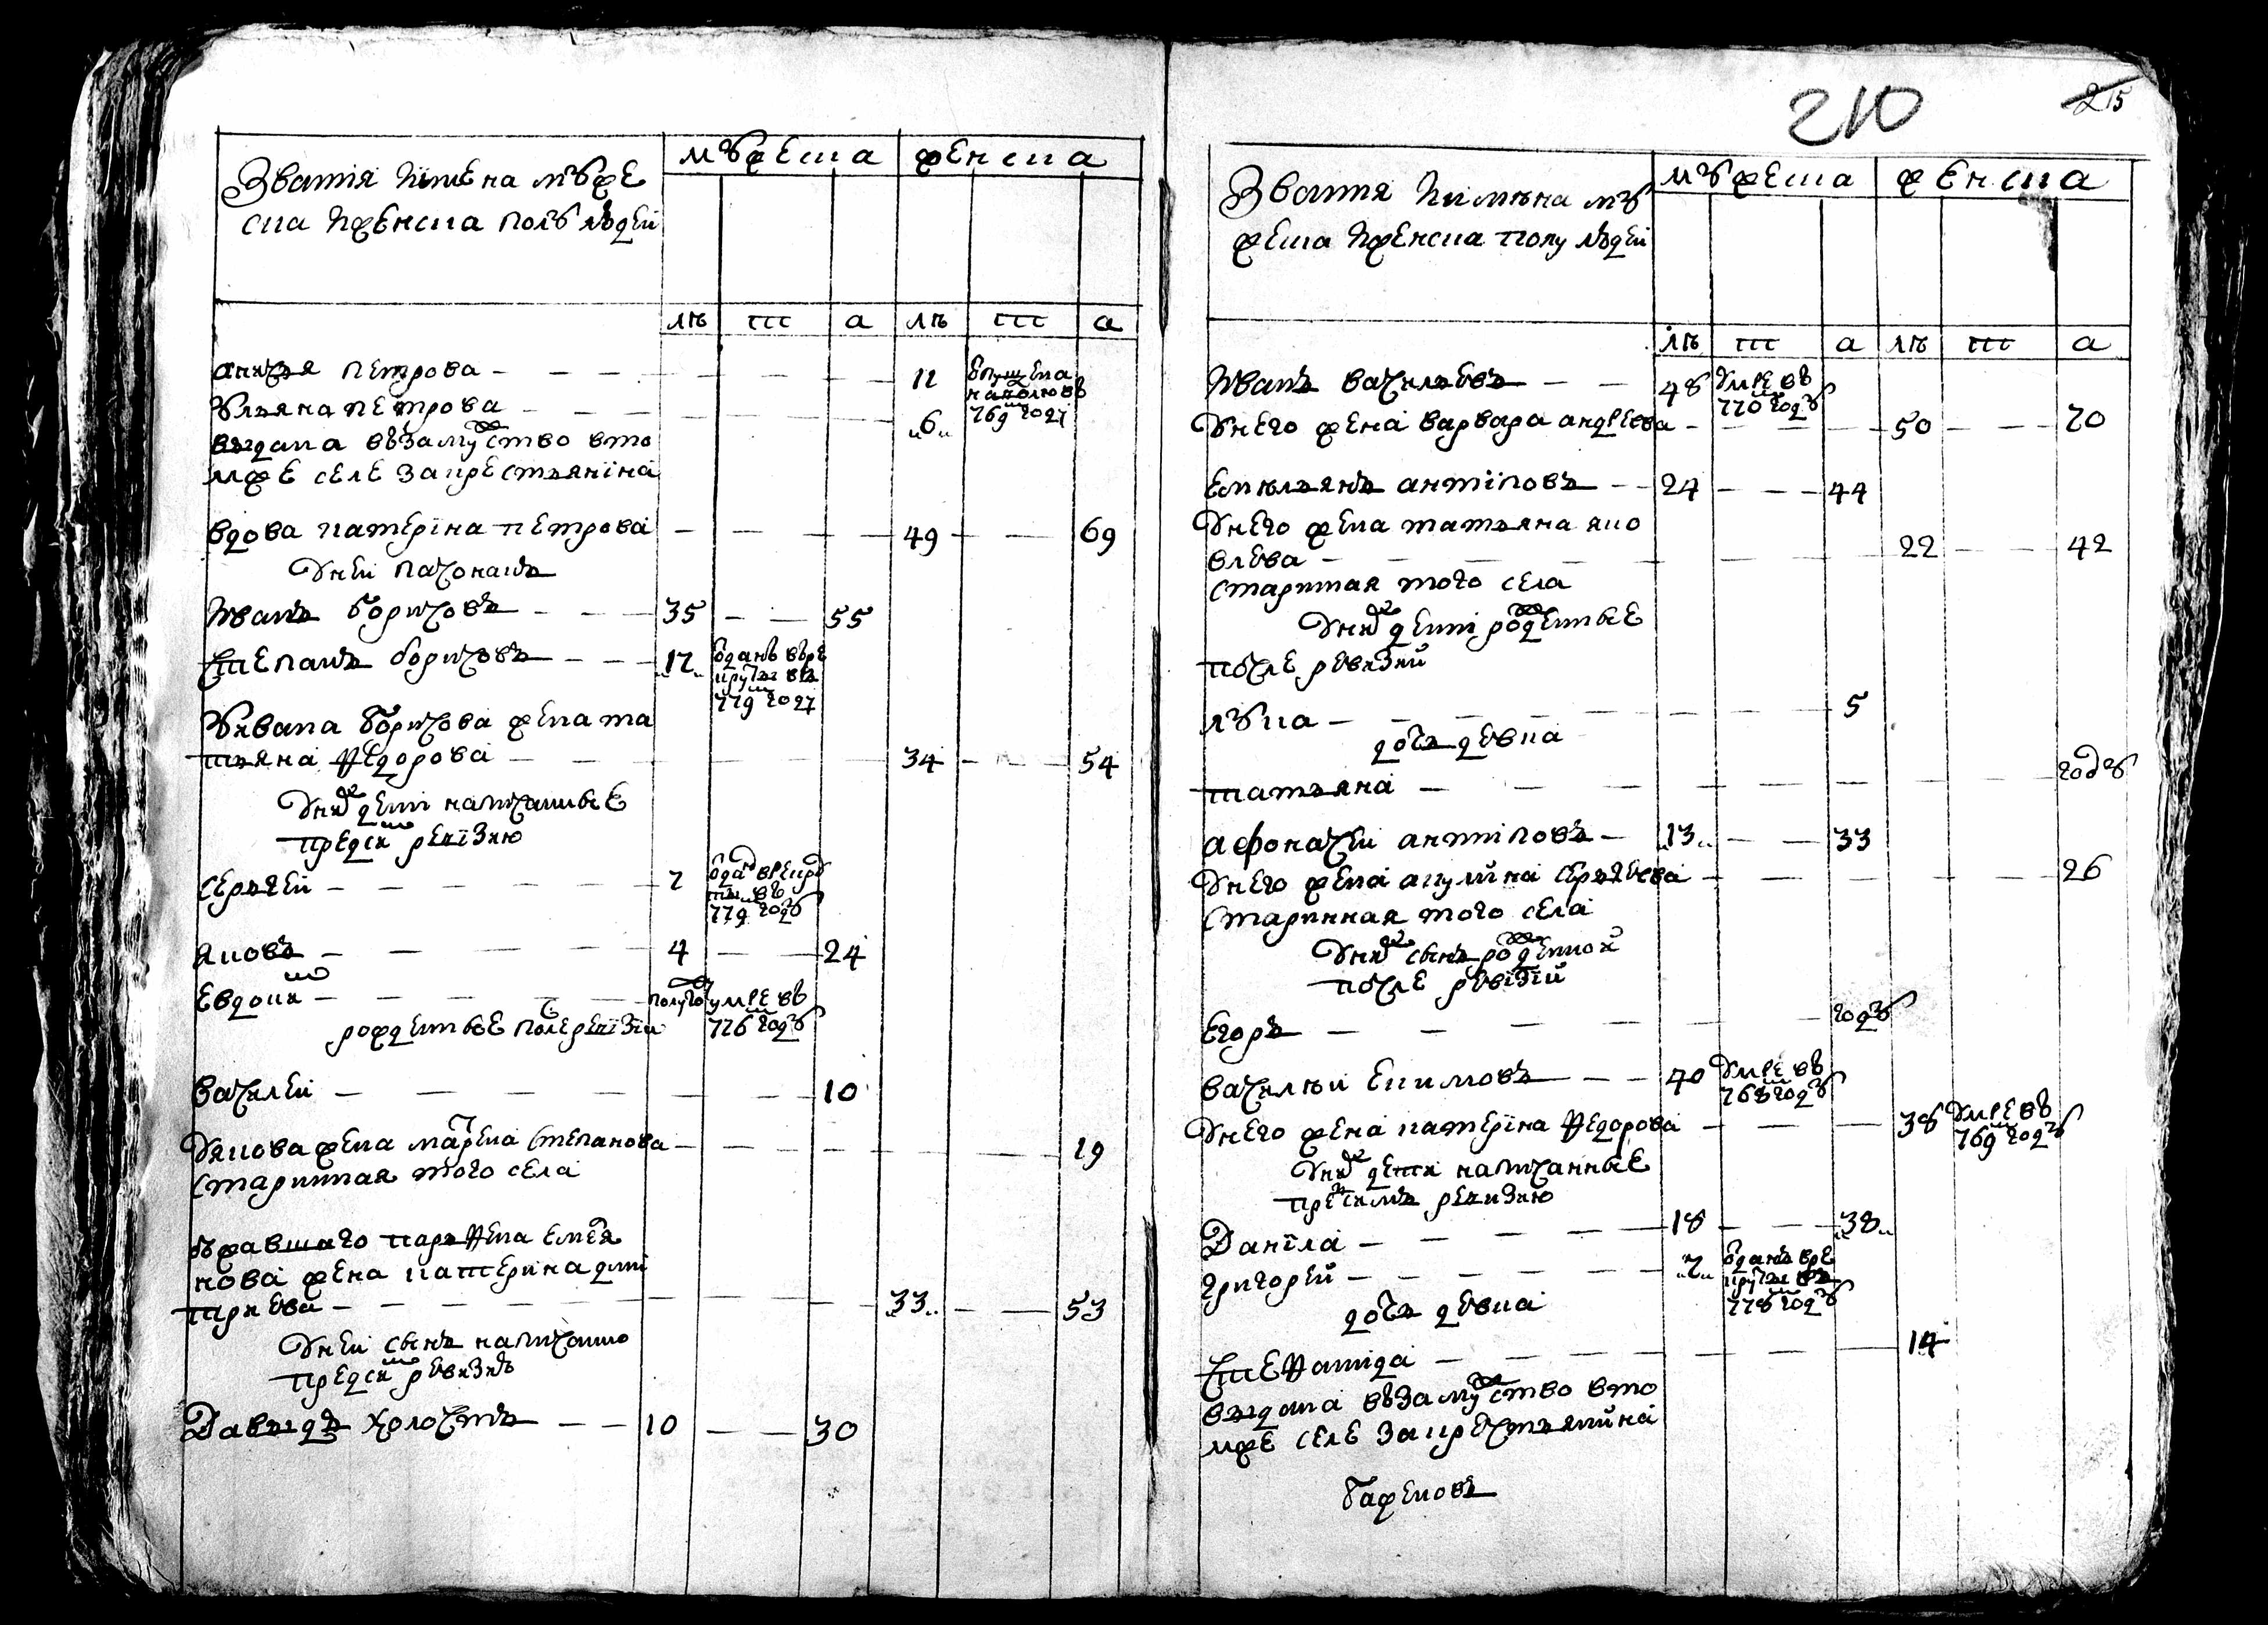 210
215
Звания и имена муже
ска и женска полу людей
мужеска
женска
лѣ
т
а
лѣ
т
а
анисья петрова — 11
отпущена
на волю въ
769м году
Ульяна петрова — „6„
выдана въ замужство в то
мже селе за крестьянина
вдова катерїна петрова — 49 — 69
У ней пасонакъ
Иванъ борисовъ — 35 — 55
Степанъ борисовъ — „12„
отданъ в ре
круты въ
779м году
У ивана борисова жена та
тьяна Федорова — 34 — 54
У них дети написанные
пред сию ревїзию
Сергей — 2
отдан в рекру
ты въ
779 году
яковъ — 4 — 24
Евдоким — полуго
умре въ
776м году
рожденные после ревїзїи
Василей — 10
У якова жена марена Степанова — 19
Старинная того села
бежавшаго парфена емел
нова жена катерина дми
триева — „33„ — 53
У ней сынъ написанно
пред сию ревизию
Давыдъ холостъ — 10 — 30
Звания и имѣна му
жеска и женска полу людей
мужеска
женска
лѣ
т
а
лѣ
т
а
Иванъ васильевъ — 48
умре въ
770м году
У него жена варвара андреева — 50 — 70
Емѣльянъ антїповъ — 24 — 44
У него жена татьяна яко
влева — 22 — 42
Старинная того села
У них дети рожденные
после ревизии
лука — 5
дочь девка
татьяна — году
афонасей антїповъ — „13„ — 33
У него жена акулина сергеева — 26
Старинная того села
У них сынъ рожденной
после ревїзїи
Егоръ — году
василѣй екимовъ — 40
умре въ
768м году
У него жена катерїна Федорова — 38
умре въ
769м году
У них дети написанные
пред симъ ревизию
Данїла — 18 — „38„
григорей — „7„
отданъ в ре
круты въ
778м году
дочь девка
Стефанида — 14
выдана въ замужство в то
мже селе за крестьянина
баженовъ